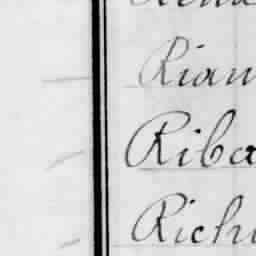 Rian
Riba
Richi